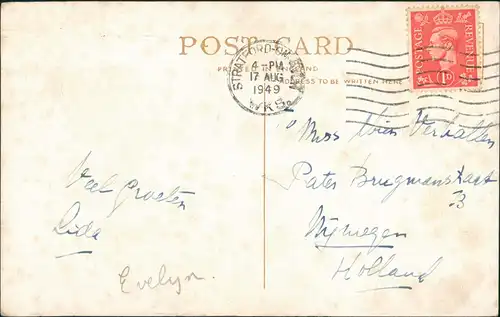 POST CARD
PRINTED IN ENGLAND
ADDRESS TO BE WRITTEN HERE
STRATFORD-ON-AVON
4 - PM
17 AUG
1949
WKS.
POSTAGE
REVENUE
1D
Miss Wies Verhallen
Pater Brugmanstraat
3
Nijmegen
Holland
Veel groeten
Lida
Evelyn.